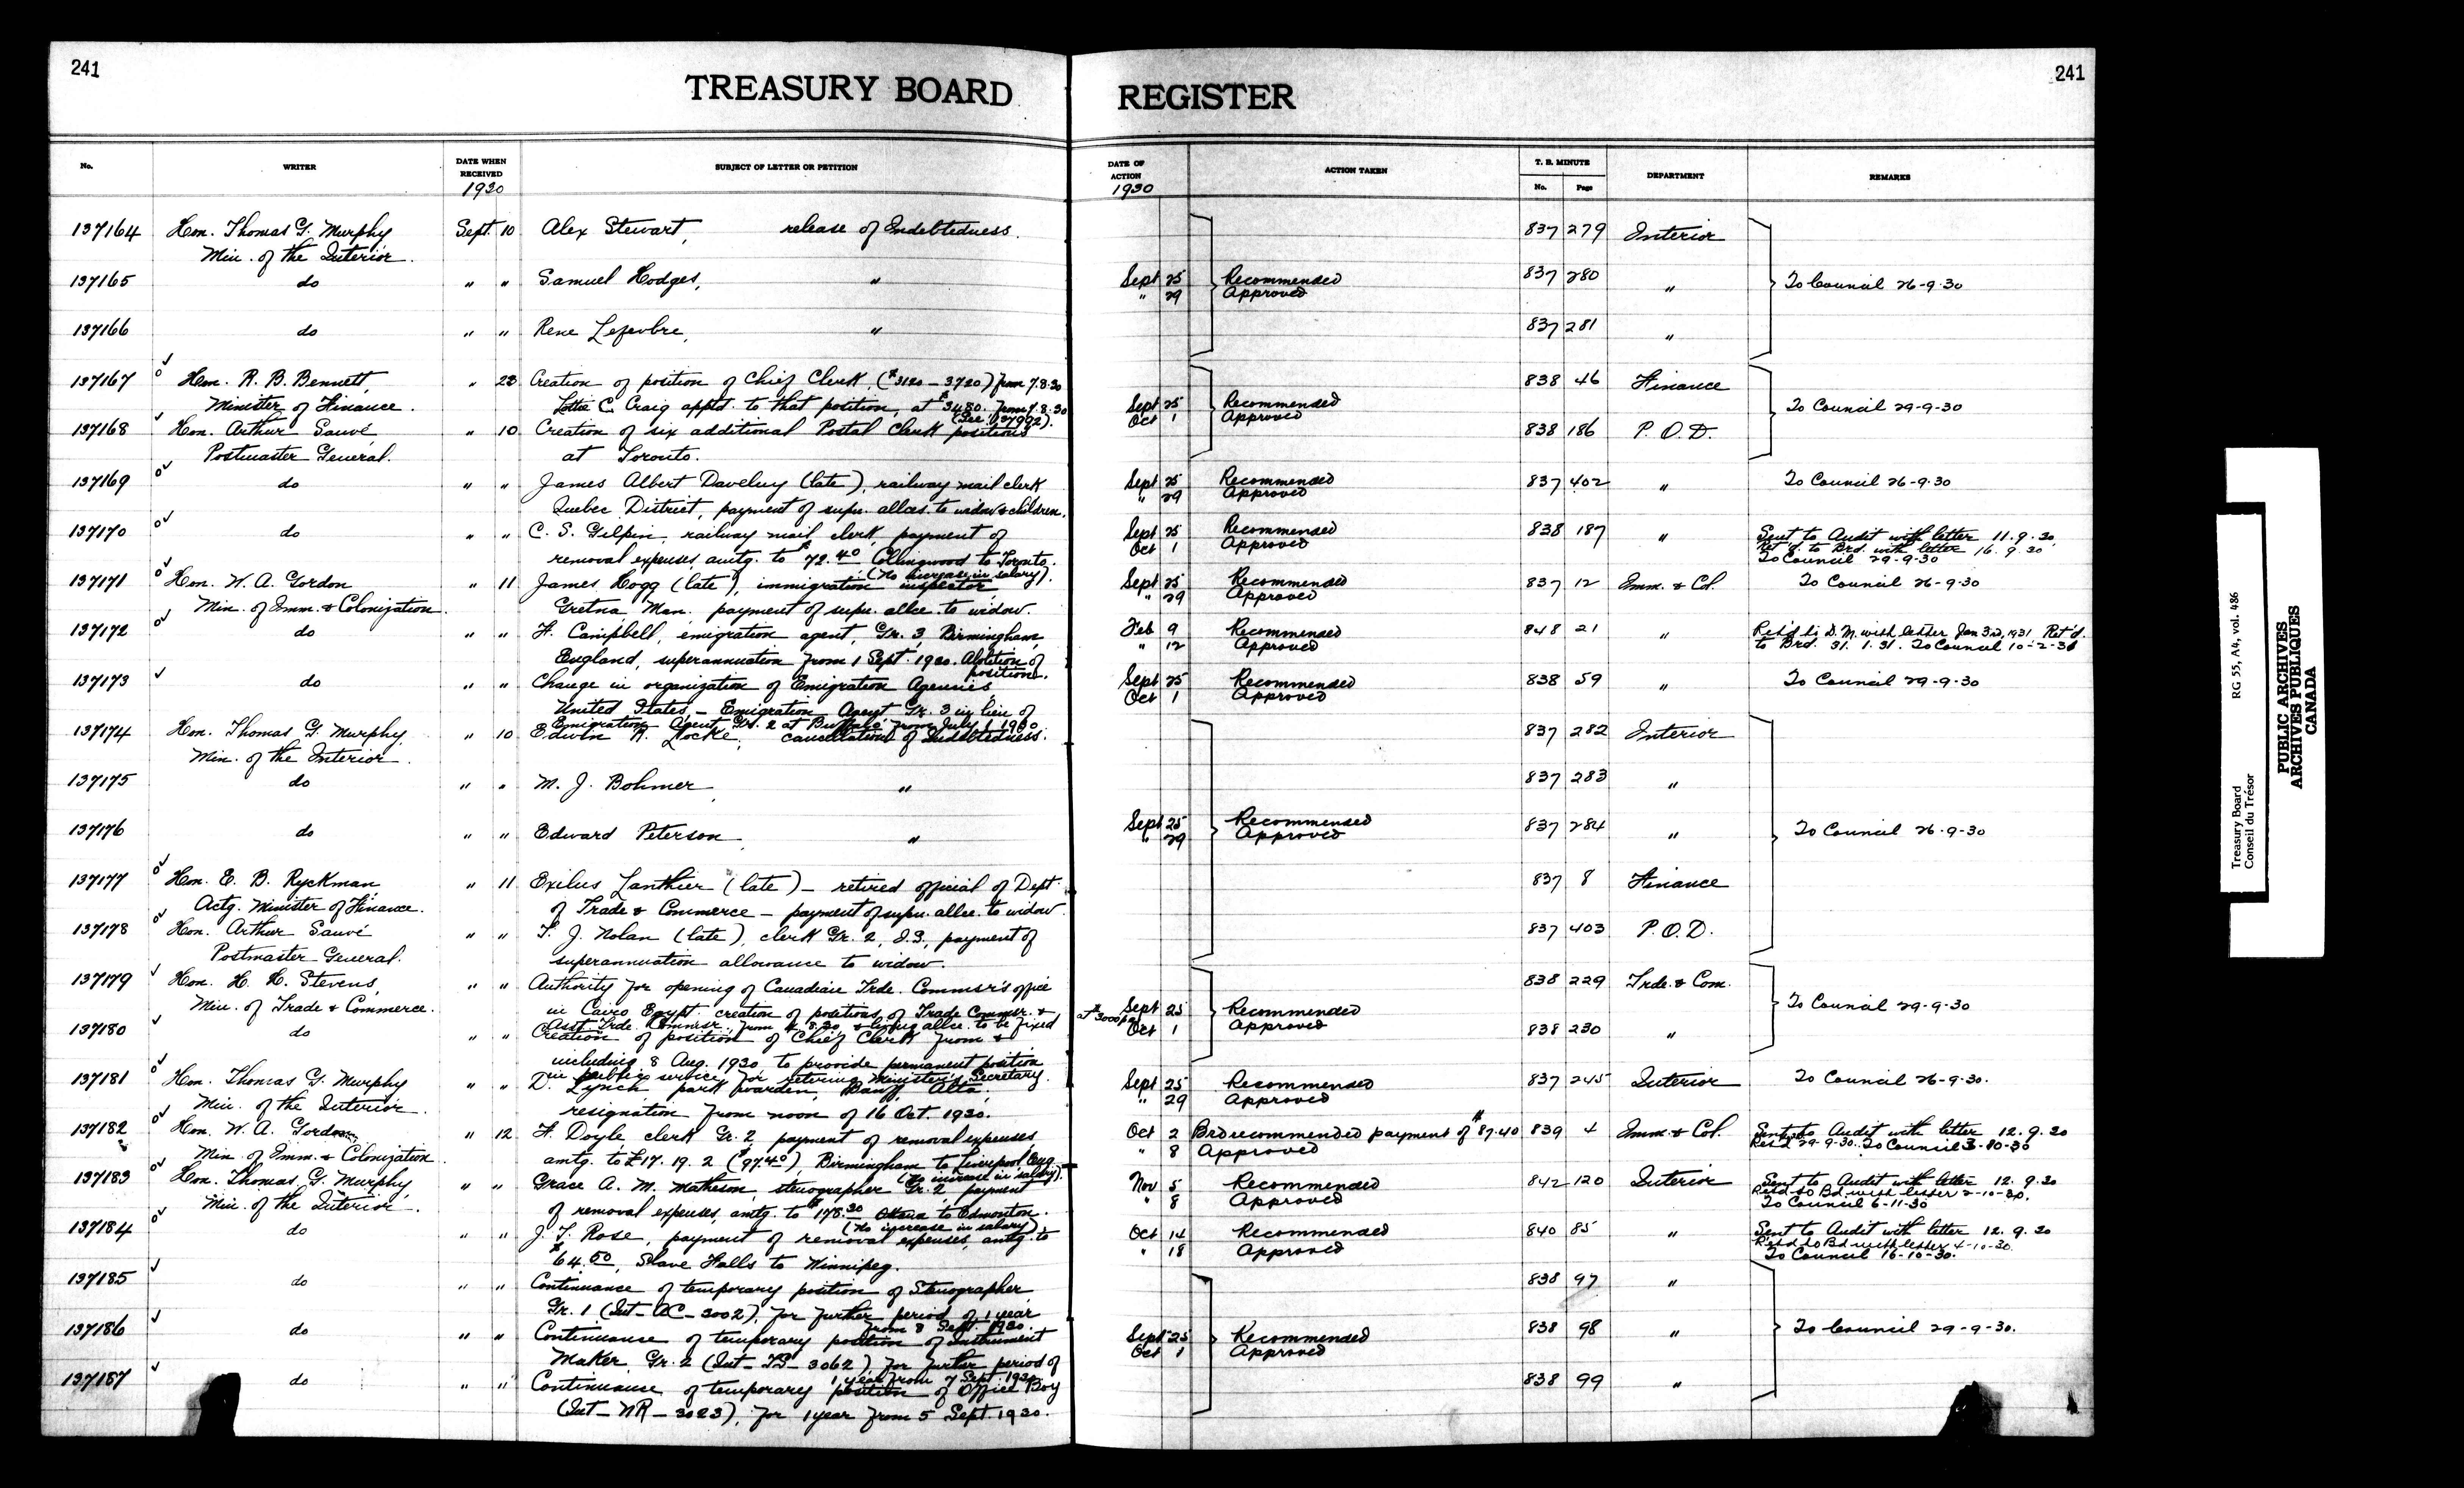 241
TREASURY BOARD REGISTER
241
No. WRITER DATE WHEN RECEIVED 1930 SUBJECT OF LETTER OR PETITION DATE OF ACTION 1930 ACTION TAKEN T. B. MINUTE No. Page DEPARTMENT REMARKS
137164 Hon. Thomas G. Murphy Sept. 10 Alex Stewart, release of Indebtedness. 837 279 Interior
Min. of the Interior.
137165 do " " Samuel Hodges, " Sept 25 Recommended 837 280 " To Council 26-9-30
" 29 Approved
137166 do " " Rene Lefevbre, " 837 281 "
137167 Hon. R. B. Bennett, " 23 Creation of position of Chief Clerk, ($3120 - 3720) from 7.8.30 838 46 Finance
Minister of Finance. Lottie C. Craig apptd. to that position, at $3480. from 7.8.30 Sept 25 Recommended To Council 29-9-30
(See 137992).
Oct 1 Approved
137168 Hon. Arthur Sauvé " 10 Creation of six additional Postal Clerk positions 838 186 P. O. D.
Postmaster General. at Toronto.
137169 do " " James Albert Daveluy (late), railway mail clerk Sept 25 Recommended 837 402 " To Council 26-9-30
Quebec District, payment of supn. allces. to widow & children. " 29 Approved
137170 do " " C. S. Gilpin, railway mail clerk, payment of Sept 25 Recommended 838 187 " Sent to Audit with letter 11.9.30.
removal expenses amtg. to $72.40 Collingwood to Toronto. Oct 1 Approved Ret'd. to Brd. with letter 16.9.30
(No increase in salary). To Council 29-9-30
137171 Hon. W. A. Gordon " 11 James Hogg (late), immigration inspector Sept 25 Recommended 837 12 Imm. & Col. To Council 26-9-30
Min. of Imm. & Colonization. Gretna, Man. payment of supn. allce. to widow. " 29 Approved
137172 do " " H. Campbell, emigration agent, Gr. 3, Birmingham, Feb 9 Recommended 848 21 " Ret'd to D. M. with letter Jan 3rd, 1931. Ret'd.
England, superannuation from 1 Sept. 1930. Abolition of position. " 12 Approved to Brd. 31.1.31. To Council 10-2-31
137173 do " " Change in organization of Emigration Agencies, Sept 25 Recommended 838 59 " To Council 29-9-30
United States - Emigration Agent Gr. 3 in lieu of Oct 1 Approved
Emigration Agent, Gr. 2 at Buffalo from July 1 1930.
137174 Hon. Thomas G. Murphy, " 10 Edwin R. Locke, cancellation of Indebtedness. 837 282 Interior
Min. of the Interior.
137175 do " " M. J. Bohmer, " 837 283 "
137176 do " " Edward Peterson, " Sept 25 Recommended 837 284 " To Council 26-9-30
" 29 Approved
137177 Hon. E. B. Ryckman, " 11 Exilus Lanthier (late) - retired official of Dept. 837 8 Finance
Actg. Minister of Finance. of Trade & Commerce - payment of supn. allce. to widow.
137178 Hon. Arthur Sauvé " " T. J. Nolan (late), clerk Gr. 2, payment of 837 403 P. O. D.
Postmaster General. superannuation allowance to widow.
137179 Hon. H. H. Stevens, " " Authority for opening of Canadian Trde. Commsr's office 838 229 Trde. & Com.
Min. of Trade & Commerce. in Cairo Egypt. creation of positions of Trade Commsr. & Sept 25 Recommended To Council 29-9-30
Asst. Trde. Commsr. from 8.30 & living allce. to be fixed at $3000 p.a.
137180 do " " Creation of position of Chief Clerk from & Oct 1 Approved 838 230 "
including 8 Aug. 1930 to provide permanent position
in public service for retiring Minister's Secretary.
137181 Hon. Thomas G. Murphy " " D. Lynch park warden, Banff, Alta, Sept 25 Recommended 837 245 Interior To Council 26-9-30.
Min. of the Interior. resignation from noon of 16 Oct. 1930. " 29 Approved
137182 Hon. W. A. Gordon " 12 H. Doyle, clerk Gr. 2, payment of removal expenses Oct 2 Brd recommended payment of $87.40 839 4 Imm. & Col. Sent to Audit with letter 12.9.30
Min. of Imm. & Colonization. amtg. to £17. 19. 2 ($97.40), Birmingham to Liverpool, Eng. " 8 Approved Ret'd 29-9-30. To Council 3-10-30
(No increase in salary).
137183 Hon. Thomas G. Murphy, " " Grace A. M. Matheson, stenographer Gr. 2, payment Nov 5 Recommended 842 120 Interior Sent to Audit with letter 12.9.30
Min. of the Interior. of removal expenses, amtg. to $178.30 Ottawa to Edmonton. " 8 Approved Ret'd to Bd with letter 2-10-30.
(No increase in salary). To Council 6-11-30
137184 do " " J. T. Rose, payment of removal expenses, amtg. to Oct 14 Recommended 840 85 " Sent to Audit with letter 12.9.30
$64.50, Slave Falls to Winnipeg. " 18 Approved Ret'd to Bd with letter 4-10-30.
To Council 16-10-30.
137185 do " " Continuance of temporary position of Stenographer, 838 97 "
Gr. 1 (Int-AC-3002), for further period of 1 year
from 8 Sept. 1930.
137186 do " " Continuance of temporary position of Instrument Sept 25 Recommended 838 98 " To Council 29-9-30.
Maker, Gr. 2 (Int-TS-3062), for further period of Oct 1 Approved
1 year from 7 Sept. 1930.
137187 do " " Continuance of temporary position of Office Boy 838 99 "
(Int-NR-3023), for 1 year from 5 Sept. 1930.
Treasury Board RG 55, A4, vol. 486
Conseil du Trésor
PUBLIC ARCHIVES
ARCHIVES PUBLIQUES
CANADA